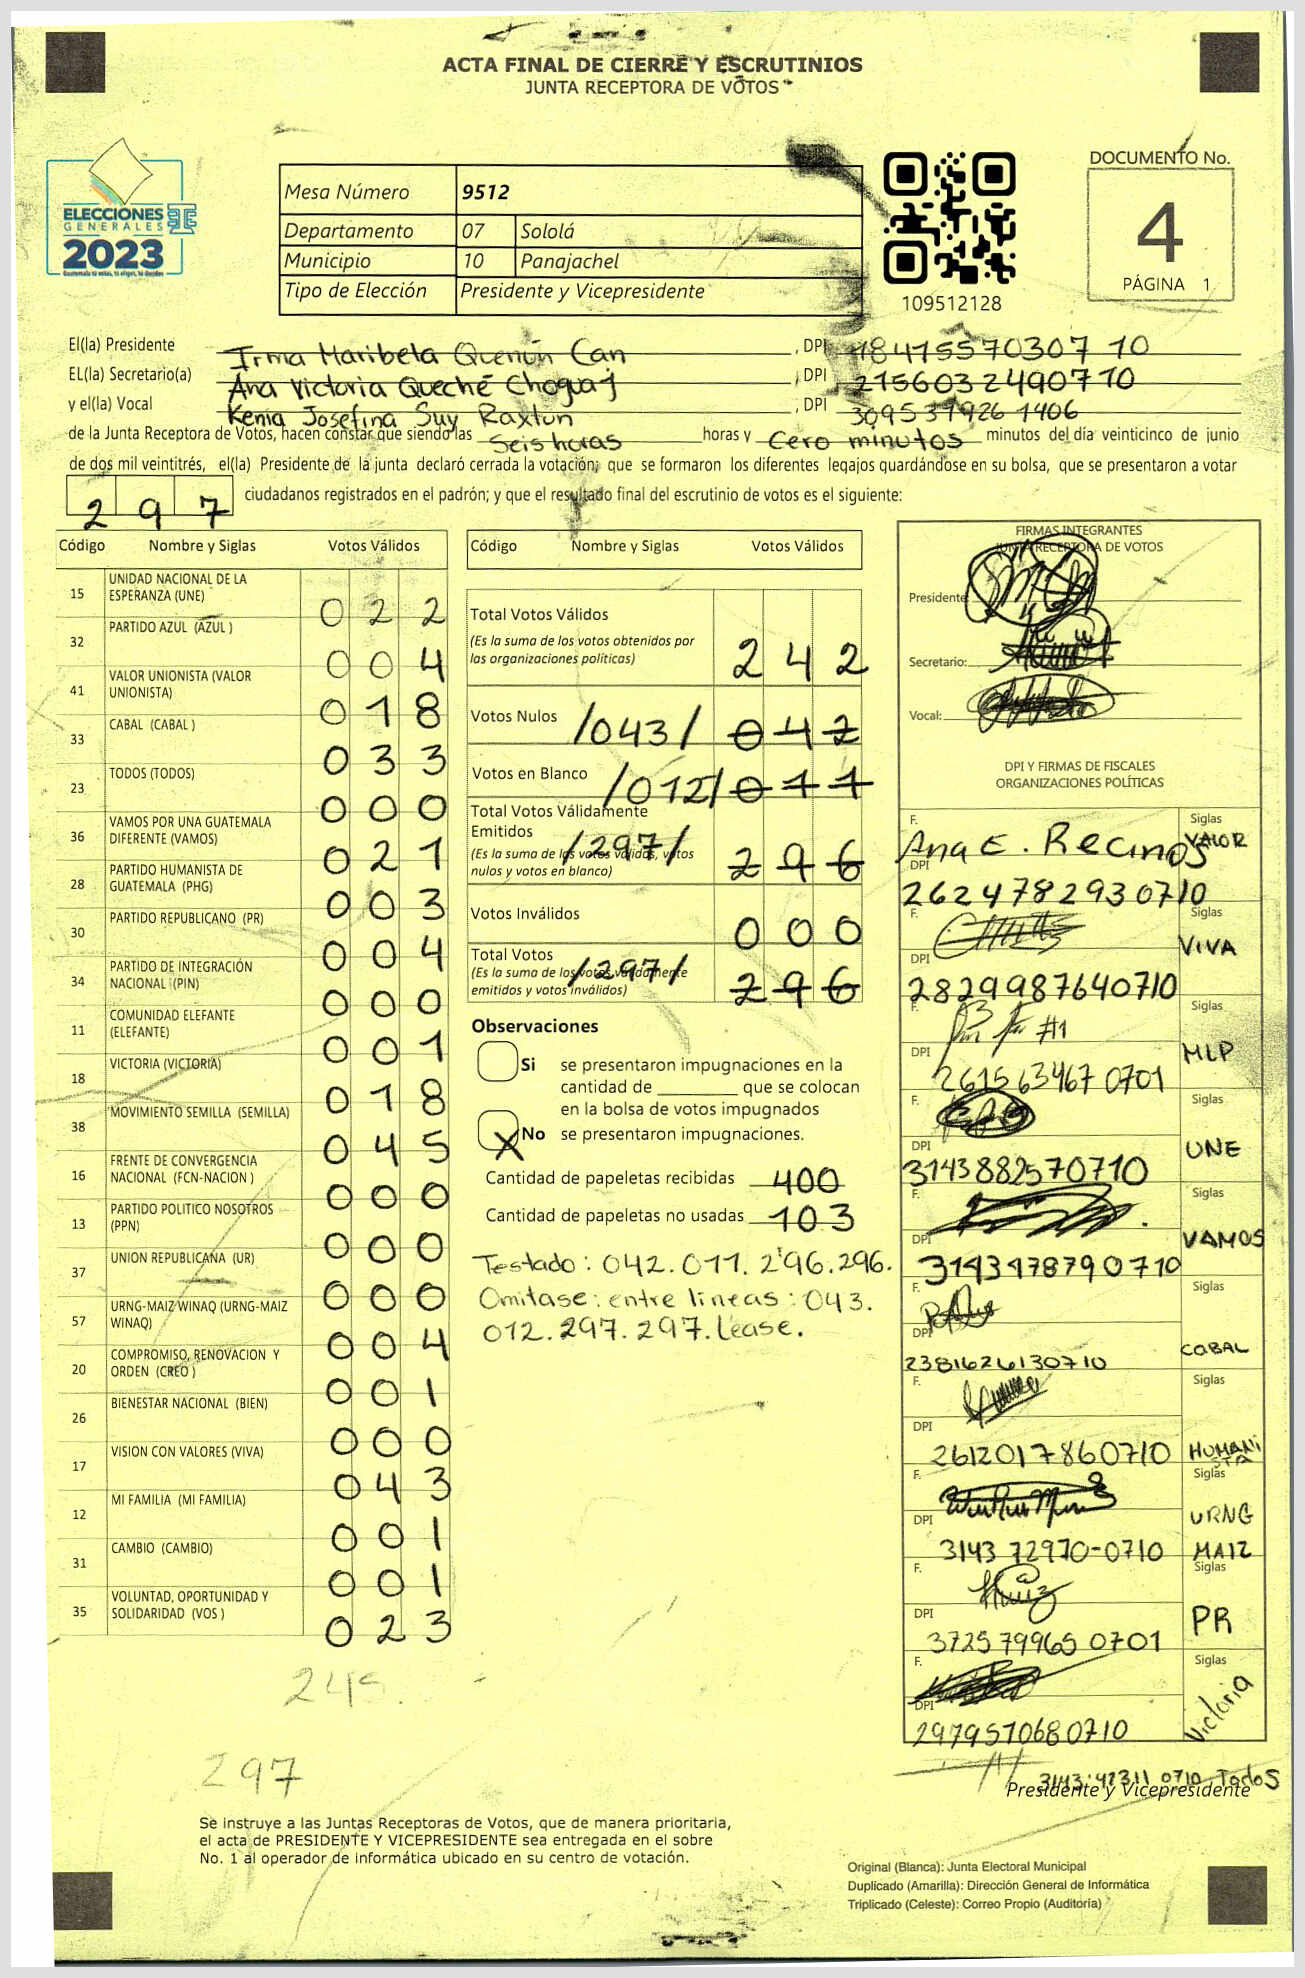 ACTA FINAL DE CIERRE Y ESCRUTINIOS
JUNTA RECEPTORA DE VOTOS
ELECCIONES
GENERALES
2023
Mesa Número 9512
Departamento 07 Sololá
Municipio 10 Panajachel
Tipo de Elección Presidente y Vicepresidente
109512128
DOCUMENTO No.
4
PÁGINA 1
El(la) Presidente Irma Maribela Quenún Can, DPI 18415570307 10
EL(la) Secretario(a) Ana Victoria Queché Choguaj, DPI 2156032490710
y el(la) Vocal Kenia Josefina Suy Raxtun, DPI 309537926 1406
de la Junta Receptora de Votos, hacen constar que siendo las Seis horas horas y Cero minutos minutos del día veinticinco de junio
de dos mil veintitrés, el(la) Presidente de la junta declaró cerrada la votación; que se formaron los diferentes legajos guardándose en su bolsa, que se presentaron a votar
297 ciudadanos registrados en el padrón; y que el resultado final del escrutinio de votos es el siguiente:
Código Nombre y Siglas Votos Válidos
15 UNIDAD NACIONAL DE LA ESPERANZA (UNE) 022
32 PARTIDO AZUL (AZUL ) 004
41 VALOR UNIONISTA (VALOR UNIONISTA) 018
33 CABAL (CABAL ) 033
23 TODOS (TODOS) 000
36 VAMOS POR UNA GUATEMALA DIFERENTE (VAMOS) 021
28 PARTIDO HUMANISTA DE GUATEMALA (PHG) 003
30 PARTIDO REPUBLICANO (PR) 004
34 PARTIDO DE INTEGRACIÓN NACIONAL (PIN) 000
11 COMUNIDAD ELEFANTE (ELEFANTE) 001
18 VICTORIA (VICTORIA) 018
38 MOVIMIENTO SEMILLA (SEMILLA) 045
16 FRENTE DE CONVERGENCIA NACIONAL (FCN-NACION ) 000
13 PARTIDO POLITICO NOSOTROS (PPN) 000
37 UNION REPUBLICANA (UR) 000
57 URNG-MAIZ WINAQ (URNG-MAIZ WINAQ) 004
20 COMPROMISO, RENOVACION Y ORDEN (CREO ) 001
26 BIENESTAR NACIONAL (BIEN) 000
17 VISION CON VALORES (VIVA) 043
12 MI FAMILIA (MI FAMILIA) 001
31 CAMBIO (CAMBIO) 001
35 VOLUNTAD, OPORTUNIDAD Y SOLIDARIDAD (VOS ) 023
297
Código Nombre y Siglas Votos Válidos
Total Votos Válidos
(Es la suma de los votos obtenidos por
las organizaciones políticas) 242
Votos Nulos /043/ 042
Votos en Blanco /012/ 011
Total Votos Válidamente
Emitidos /297/ 296
(Es la suma de los votos válidos, votos
nulos y votos en blanco)
Votos Inválidos 000
Total Votos /297/ 296
(Es la suma de los votos válidamente
emitidos y votos inválidos)
Observaciones
Si se presentaron impugnaciones en la
cantidad de ________ que se colocan
en la bolsa de votos impugnados
X No se presentaron impugnaciones.
Cantidad de papeletas recibidas 400
Cantidad de papeletas no usadas 103
Testado: 042.011. 296.296.
Omitase: entre lineas: 043.
012.297.297.Lease.
FIRMAS INTEGRANTES
JUNTA RECEPTORA DE VOTOS
Presidente:
Secretario:
Vocal:
DPI Y FIRMAS DE FISCALES
ORGANIZACIONES POLÍTICAS
F. Ana E. Recinos Siglas VALOR
DPI 2624782930710
F. Siglas VIVA
DPI 2829987640710
F. #1 Siglas MLP
DPI 261563467 0701
F. Siglas UNE
DPI 3143882570710
F. Siglas VAMOS
DPI 3143478790710
F. Siglas CABAL
DPI 2381626130710
F. Siglas HUMANISTA
DPI 2612017860710
F. Siglas URNG MAIZ
DPI 3143 72970-0710
F. Siglas PR
DPI 3725799650701
F. Siglas Victoria
DPI 2979570680710
3143 42311 0710 Todos
Presidente y Vicepresidente
Se instruye a las Juntas Receptoras de Votos, que de manera prioritaria,
el acta de PRESIDENTE Y VICEPRESIDENTE sea entregada en el sobre
No. 1 al operador de informática ubicado en su centro de votación.
Original (Blanca): Junta Electoral Municipal
Duplicado (Amarilla): Dirección General de Informática
Triplicado (Celeste): Correo Propio (Auditoría)